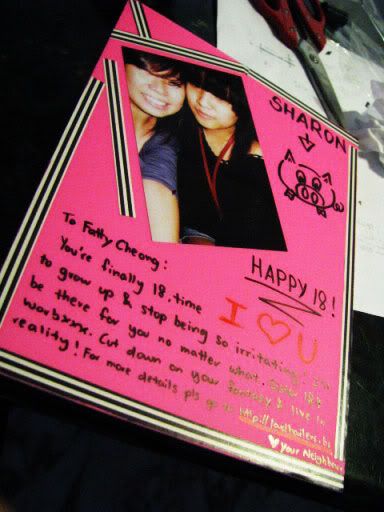 SHARON
HAPPY 18!
I ♡ U
To Fatty Cheong :
You're finally 18. time
to grow up & stop being so irritating!
be there for you no matter what.
Cut down on your fantasy & live in
reality! For more details pls go to
♡ your Neighbour